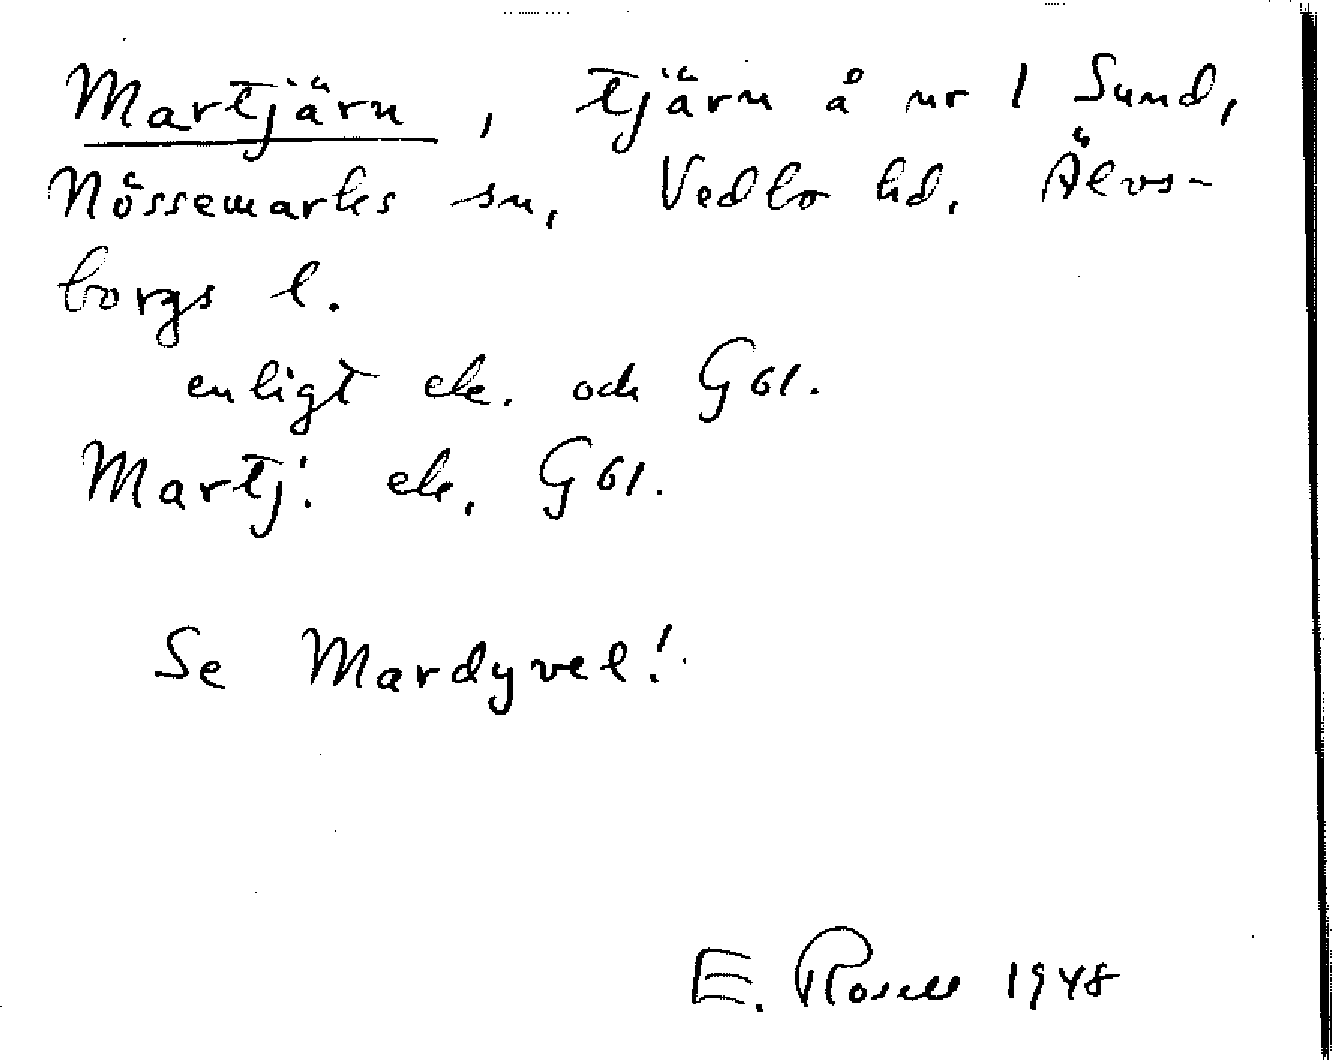 Martjärn, tjärn å nr 1 Sund,
Nössemarks sn, Vedbo hd, Älvs-
borgs l.
enligt ek. och G61.
Martj: ek, G61.
Se Mardyvel!
E. Rosell 1948